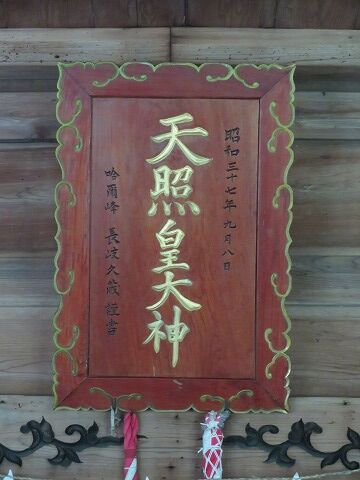 昭和三十七年九月八日
天照皇大神
哈爾峰 長岐久蔵 謹書